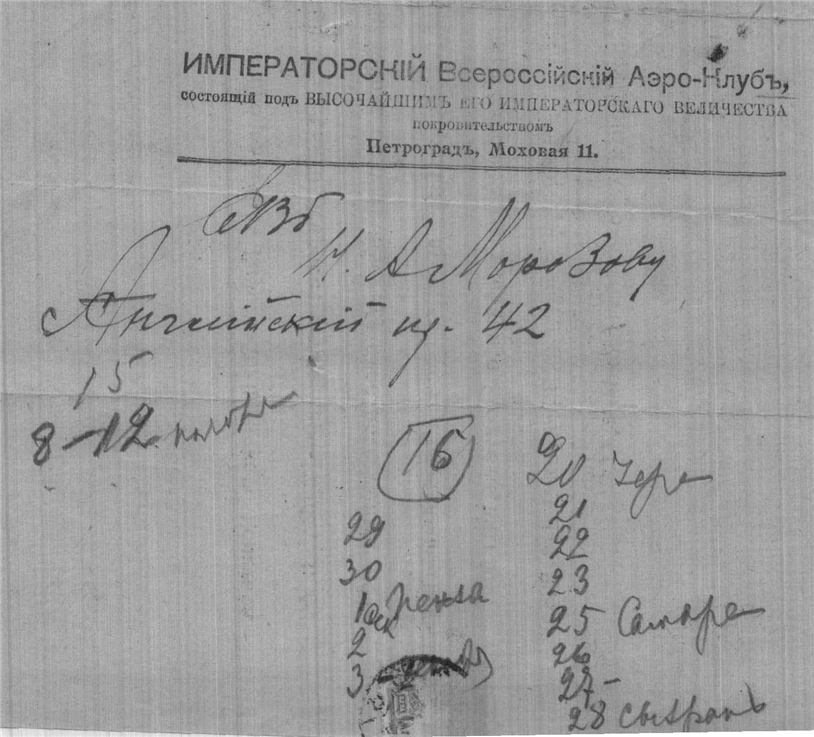 ИМПЕРАТОРСКІЙ Всероссійскій Аэро-Клубъ,
состоящій подъ ВЫСОЧАЙШИМЪ ЕГО ИМПЕРАТОРСКАГО ВЕЛИЧЕСТВА
покровительствомъ
Петроградъ, Моховая 11.
СПБ
Н. А Морозову
Английский пр. 42
15
8-12 ноября
16
29
30
1 окт Пенза
2
3
20
21
22
23
25 Самаре
26
27-
28 Сызрань